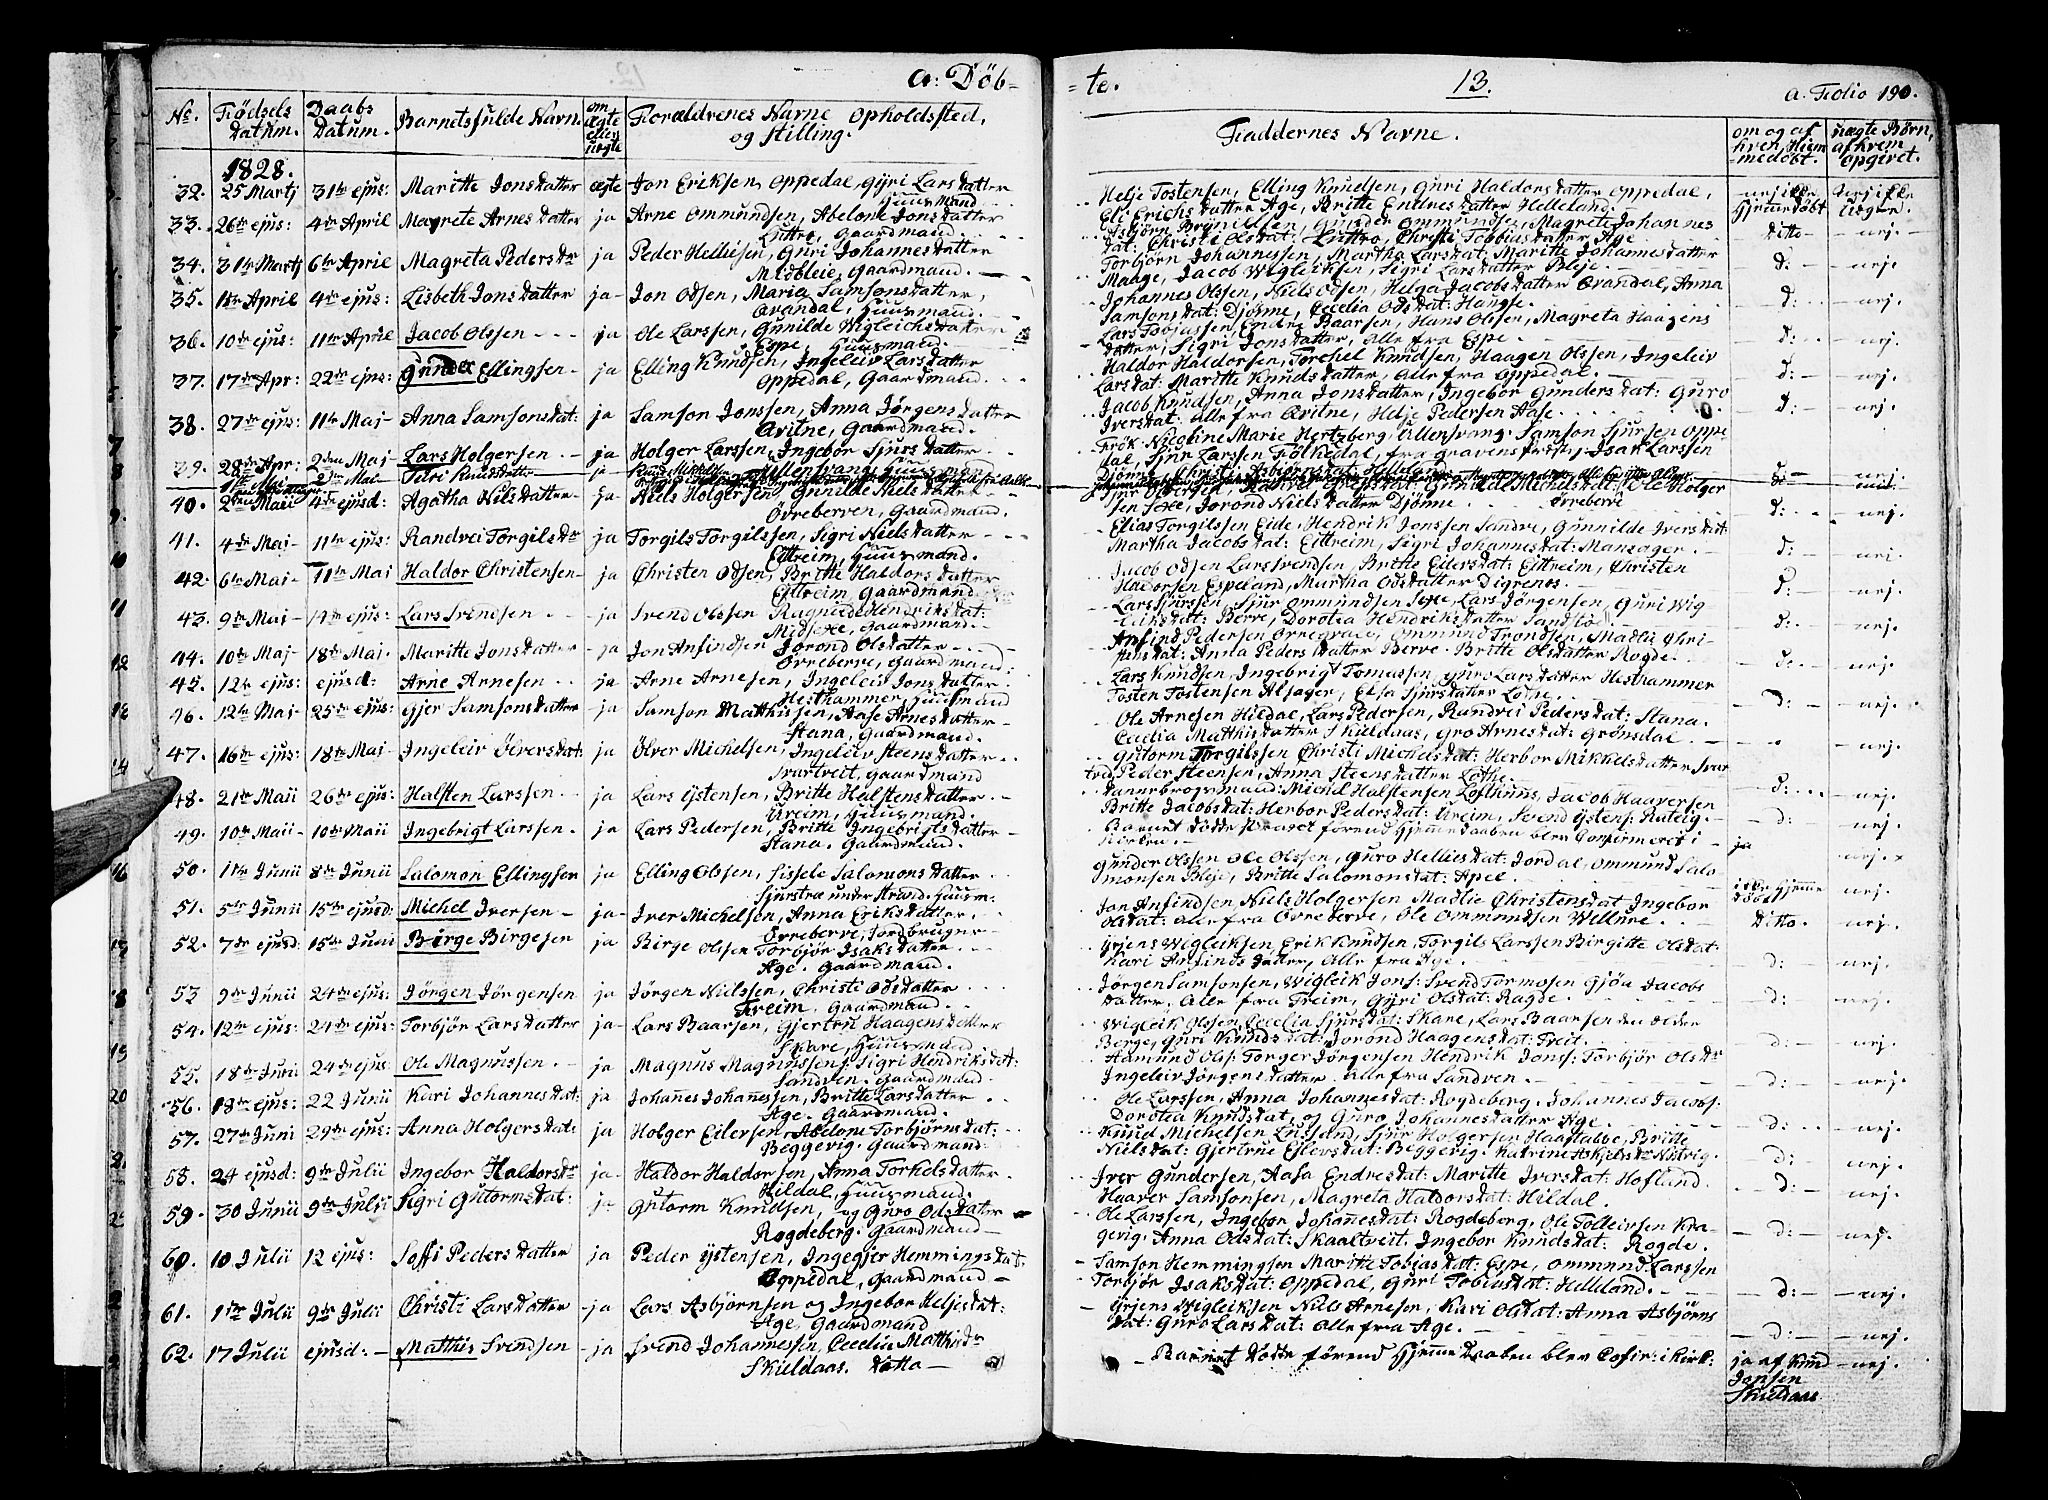 a: Döb-
No. Födsels Datum. Daabs Datum. Barnets fulde Navn. om ægte eller uægte Forældrenes Navne Opholdsted, og Stilling.
1828.
32. 25 Martj 31te ejus: Maritte Jonsdatter ægte Jon Eriksen, Oppedal, Gyri Larsdatter
Huusmand
33. 26te ejus: 4de April Magrete Arnesdatter ja Arne Ommundsen, Abelone Jonsdatter
Luttro, Gaardmand.
34. 31te Martj 6te April Magreta Pedersdr ja Peder Helliesen, Guri Johannesdatter
Midbleie, Gaardmand.
35. 1ste April 4de ejus: Lisbeth Jonsdatter ja Jon Odsen, Maria Samsonsdatter,
Qvandal, Huusmand.
36. 10de ejus: 11te April Jacob Olssen ja Ole Larssen, Gunilde Wigleichsdatter
Espe, Huusmand.
37. 17de Apr: 22de ejus: Gunder Ellingsen ja Elling Knudsen, Ingeleiv Larsdatter
Oppedal, Gaardmand.
38. 27de ejus: 11te Maj Anna Samsonsdat: ja Samson Jonssen, Anna Jörgensdatter
Qvitne, Gaardmand.
39. 28de Apr: 2den Maj Lars Holgersen ja Holger Larssen, Ingebor Sjursdatter
Ullensvang, Huusmand
40. 2den Maii 4de ejusd: Agatha Nilsdatter ja Niels Holgersen, Gunilde Nielsdatter
Övreberven, Gaardmand.
41. 4de Maj 11te ejus: Randvei Torgilsdr ja Torgils Torgilssen, Sigri Nielsdatter
Eittreim, Huusmand.
42. 6te Maj 11te Maj Haldor Christensen ja Christen Odsen, Britte Haldorsdatter
Eittreim, Gaardmand
43. 9de Maj 14de ejus: Lars Svendsen ja Svend Olssen Ragnilde Hendriksdat:
Midsexe, Gaardmand.
44. 10de Maj 18de Maj Maritte Jonsdatter ja Jon Anfindsen Jorond Olsdatter
Övreberve, Gaardmand:
45. 12te ejus: ejusd: Arne Arnesen ja Arne Arnesen, Ingeleiv Jonsdatter
Hesthammer, Huusmand
46. 12te Maj 25de ejus: Gjer Samsonsdatter ja Samson Matthissen, Aase Arnesdatter
Stana, Gaardmand.
47. 16te ejus: 18de Maj Ingeleiv Ölversdat: ja Ölver Michelsen, Ingeleiv Steensdatter
Svartveit, Gaardmand
48. 21de Maii 26de ejus: Halsten Larssen ja Lars Ystensen, Britte Halstensdatter
Ureim, Huusmand.
49. 10de Maii 10de Maii Ingebrigt Larssen ja Lars Pedersen, Britte Ingebrigtsdatter
Stana. Gaardmand.
50. 1ste Junii 8de Junii Salomon Ellingsen ja Elling Olssen, Sissele Salomonsdatter
51. 5te Junii 15de ejusd: Michel Iversen ja Iver Michelsen, Anna Eriksdatter
Övreberve, Jordbruger
52. 7de ejusd: 15de Junii Börge Birgesen ja Birge Olssen Torbjör Isaksdatter
Age. Gaardmand.
53 9de Junii 24de ejus: Jörgen Jörgensen ja Jörgen Nielssen, Christi Odsdatter
Freim. Gaardmand.
54. 12te ejus: 24de ejus: Torbjör Larsdatter ja Lars Baarsen, Gjertru Haagensdatter
Skare, Huusmand
55. 18de Junii 24de ejus: Ole Magnussen ja Magnus Magnussen, Sigri Hendriksdat:
Sandven. Gaardmand
56. 18de ejus: 22 Junii Kari Johannesdat: ja Johanes Johanessen, Britte Larsdatter
Age. Gaardmand.
57. 27de Juni 29de ejus: Anna Holgersdat: ja Holger Eilersen, Abelone Torbjörnsdat:
Beggevig. Gaardmand
58. 24 ejusd: 9de Julii Ingebor Haldorsdr ja Haldor Haldorsen, Anna Torkelsdatter
Hildal, Huusmand.
59. 30 Junii 9de Julii Sigri Gutormsdat: ja Gutorm Knudsen, og Guro Odsdater
Rogdeberg. Gaardmand
60. 10 Julii 12 ejus: Soffi Pedersdatter ja Peder Ystensen, Ingegjer Hemmingsdat:
Oppedal, Gaardmand
61. 1ste Julii 9de Julii Christi Larsdatter ja Lars Asbjörnsen og Ingebor Heljesdat:
Age, Gaardmand
62. 17 Julii ejusd: Matthis Svendsen ja Svend Johannessen, Cecelia Matthisdr
Skieldaas. Ditto
-te. 13. a. Folio 190.
Faddernes Navne. om og af hven Hiemmedöbt. uægte Börn, af hvem opgivet.
Helje Tostensen, Elling Knudsen, Guri Haldorsdatter Oppedal,
Eli Erichsdatter Age, Britte Endresdatter Helleland. nej ikke hjemmedöbt
Asbjörn Brynildsen, Gunder Ommundsen, Magrete Johannes
dat: Christi Olsdat: Luttro, Christi Tobbiusdatter Age ditto nej
Torbjörn Johannessen, Martha Larsdat: Maritte Johannesdatter
Maage, Jacob Wigleiksen, Sigri Larsdatter Bleje. d: nej.
Johannes Olssen, Niels Odsen, Helga Jacobsdatter Qvandal, Anna
Samsonsdat: Djönne, Cecelia Odsdat: Hangse. d: nej.
Lars Tobjassen, Endre Baarsen, Hans Olssen, Magreta Haagens
datter, Sigri Jonsdatter, alle fra Espe. d: nej.
Haldor Haldorsen, Torchel Knudsen, Haagen Olssen, Ingeleiv
Larsdat: Maritte Knudsdatter, alle fra Oppedal. d: nej.
Jacob Knudsen, Anna Jonsdatter, Ingebor Gundersdat: Guro
Iversdat: alle fra Qvitne, Helje Pedersen Aase. d: nej.
Frök: Nicoline Marie Hertzberg, Ullensvang, Samson Sjursen Oppe
dal, Sjur Larssen Folkedal, fra Gravens Præst:, Isak Larssen
sen Sexe, Jorond Nielsdatter Djönne. Övreberve d: nej.
Elias Torgilssen Eide, Hendrik Jonssen Sandve, Gunnilde Iversdat:
Martha Jacobsdat: Eittreim, Sigri Johannesdat: Mansager. d: nej.
Jacob Odsen Lars Svendsen, Britte Eilersdat: Eittreim, Christen
Halvorsen Espeland, Martha Odsdatter Digrenes. d: nej.
Lars Sjurssen, Sjur Ommundsen Sexe, Lars Jörgensen, Guri Wig-
leiksdat: Berve, Dorotea Hendriksdatter Sandstöe d: nej.
Anfind Pedersen Övregrave, Ommund Trondsen, Madli Chri-
stensdat: Anna Pedersdatter Berve. Britte Olsdatter Rogde. d: nej.
Lars Knudsen, Ingebrigt Tomassen, Guro Larsdatter Hesthammer
Tosten Tostensen Alsager, Elsa Sjursdatter Lothe. d: nej.
Ole Arnesen Hildal, Lars Pedersen, Randvei Pedersdat: Stana.
Cecilia Matthisdatter Skieldaas, Gro Arnesdat: Grönsdal. nej.
Gutorm Torgilssen Christi Michelsdat: Herbor Mikkelsdatter Svar
tveit Peder Steensen, Anna Steensdatter Lothe. d: nej.
Dannebrogsmand: Michel Halstensen Lofthuus, Jacob Haaversen
Britte Jacobsdat: Herbor Pedersdat: Ureim, Svend Ystens: Rateig. d: nej.
Barnet döde straxt förend Hjemmedaaben blev Confirmeret i
Kirken. ja nej.
Gunder Olssen Ole Olssen, Guro Helliesdat: Jordal, Ommund Salo
monsen Bleje, Britte Salomonsdat: Apel. ikke hjemmedöbt nej.
Jon Anfindsen, Niels Holgersen Madlie Christensdat Ingebor
Olsdat: alle fra Övreberve, Ole Ommundsen Wellure. Ditto. nej.
Yrjens Wigleiksen, Erik Knudsen, Torgils Larssen Birgitte Olsdat:
Kari Anfindsdatter, Alle fra Age. d: nej.
Jörgen Samsonsen, Wigleik Jons: Svend Tormosen Gjöa Jacobs
datter. Alle fra Freim, Gyri Olsdat: Ragde. d: nej.
Wigleik Olssen, Cecelia Sjursdat: Skare, Lars Baarsen den ældre
Berge, Guri Knudsdat: Jorond Haagensdat: Freit. d: nej.
Aamund Ols: Torger Jörgensen Hendrik Jons: Torbjör Olsdr
Ingeleiv Jörgensdatter. Alle fra Sandven. d: nej.
Ole Larssen, Anna Johannesdat: Rogdeberg. Johannes Jacobs:
Dorotea Knudsdat, og Guro Johannesdatter Age. d: nej.
Knud Michelsen Lusand, Sjur Holgersen Haastabbe, Britte
Nielsdat: Gjertrue Eilevsdat: Beggevig. Katrine Askelsdr Nilvig. d: nej.
Iver Gundersen, Aasa Endresdat: Maritte Iversdat: Hofland.
Haaver Samsonsen, Magreta Haldorsdat: Hildal. d: nej.
Ole Larssen, Ingebor Johanesdat: Rogdeberg. Ole Tolleivsen Kra-
gevig. Anna Odsdat: Skaaltveit. Ingebor Knudsdat: Rogde. d: nej.
Samson Hemmingsen Maritte Tobiasdat: Espe, Ommund Larssen
Torbjör Isaksdat: Oppedal, Guri Tobiusdat: Helleland. d: nej.
Yrjens Wigleiksen Niels Arnesen, Kari Olsdat: Anna Asbjörns
dat: Guro Larsdat: alle fra Age. d: nej.
Barnet döde förend Hjemmedaaben blev Cofir: i Kirk: ja af Knud nej.
Jonsen
Skieldaas